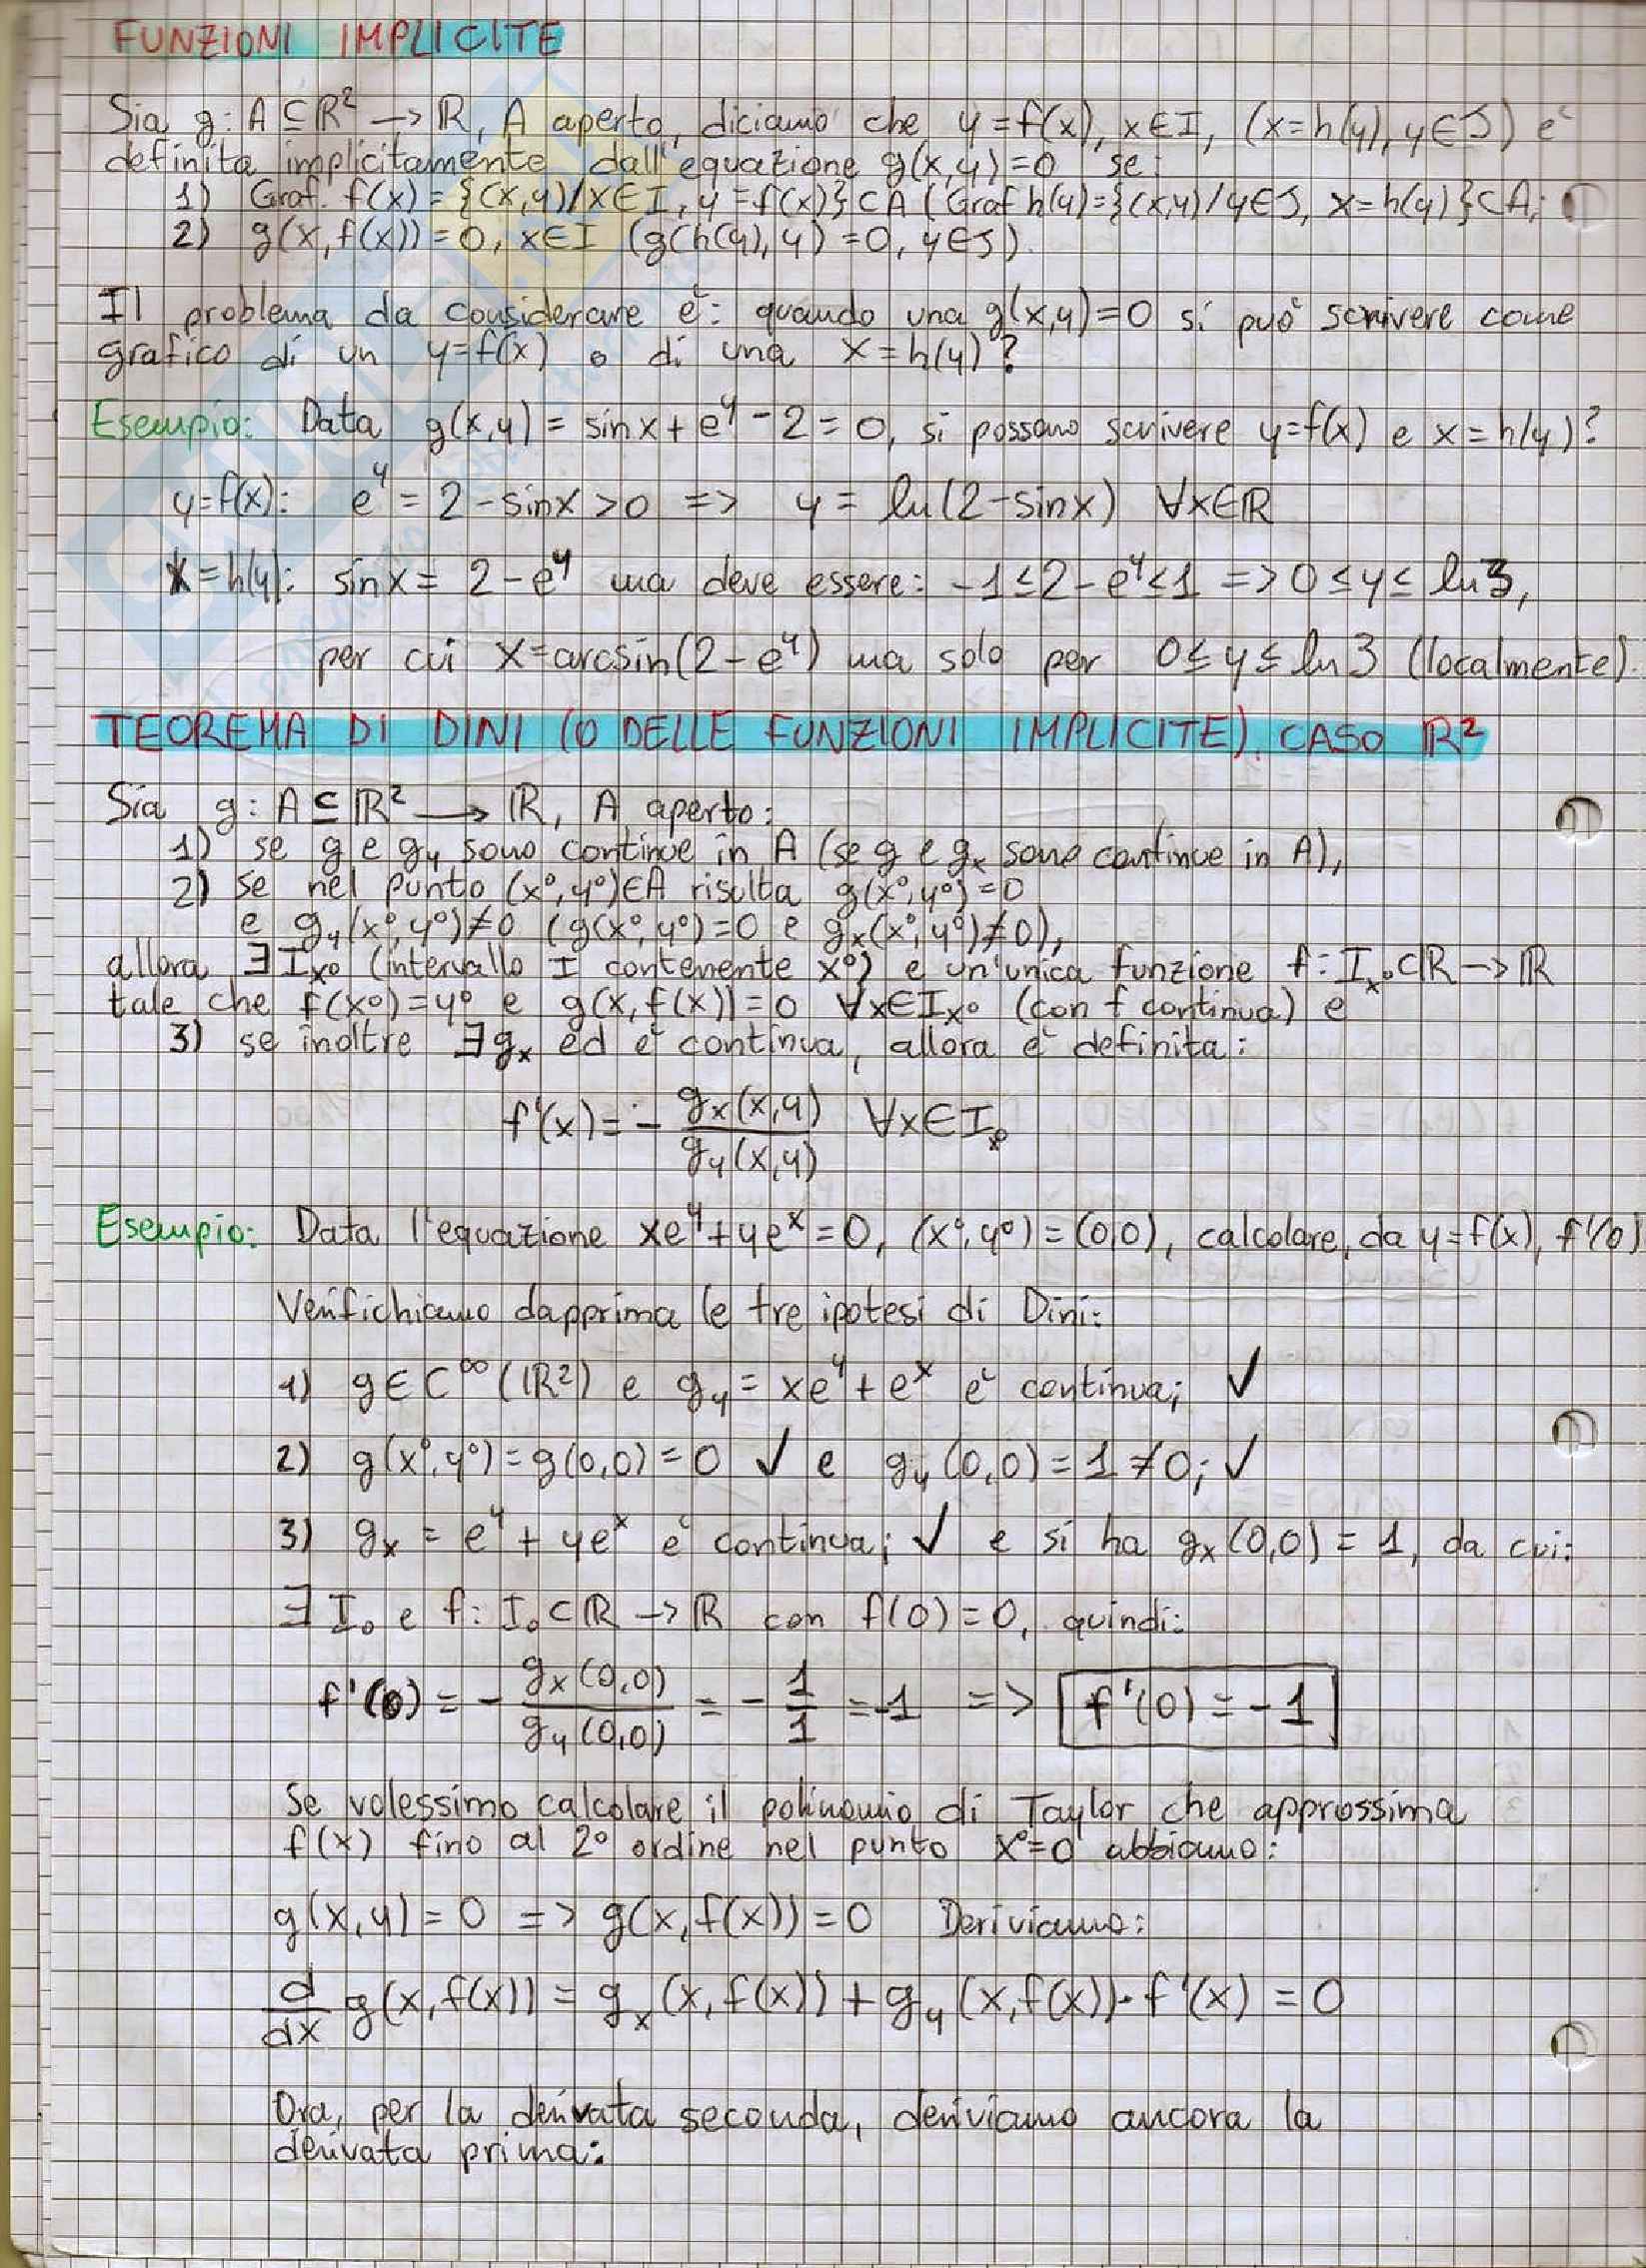 FUNZIONI IMPLICITE
Sia g: A⊆ℝ² → ℝ, A aperto, diciamo che y=f(x), x∈I, (x=h(y), y∈J) è
definita implicitamente dall'equazione g(x,y)=0 se:
1) Graf. f(x)={(x,y)/x∈I, y=f(x)}⊂A (Graf h(y)={(x,y)/y∈J, x=h(y)}⊂A;
2) g(x,f(x))=0, x∈I (g(h(y),y)=0, y∈J).
Il problema da considerare è: quando una g(x,y)=0 si può scrivere come
grafico di un y=f(x) o di una x=h(y)?
Esempio: Data g(x,y) = sinx+e^y-2=0, si possono scrivere y=f(x) e x=h(y)?
y=f(x): e^y = 2-sinx>0 => y = ln(2-sinx) ∀x∈ℝ
x=h(y): sinx = 2-e^y ma deve essere: -1≤2-e^y≤1 => 0≤y≤ ln3,
per cui x=arcsin(2-e^y) ma solo per 0≤y≤ln3 (localmente).
TEOREMA DI DINI (O DELLE FUNZIONI IMPLICITE). CASO ℝ²
Sia g: A⊆ℝ² → ℝ, A aperto:
1) se g e g_y sono continue in A (se g e g_x sono continue in A),
2) se nel punto (x°,y°)∈A risulta g(x°,y°)=0
e g_y(x°,y°)≠0 (g(x°,y°)=0 e g_x(x°,y°)≠0),
allora ∃I_x° (intervallo I contenente x°) e un'unica funzione f: I_x°⊂ℝ→ℝ
tale che f(x°)=y° e g(x,f(x))=0 ∀x∈I_x° (con f continua) e
3) se inoltre ∃g_x ed è continua, allora è definita:
f'(x)= - g_x(x,y)/g_y(x,y) ∀x∈I_x°
Esempio: Data l'equazione xe^y+ye^x=0, (x°,y°)=(0,0), calcolare, da y=f(x), f'(0)
Verifichiamo dapprima le tre ipotesi di Dini:
1) g∈C^∞(ℝ²) e g_y = xe^y+e^x è continua; ✓
2) g(x°,y°)=g(0,0)=0 ✓ e g_y(0,0)=1≠0; ✓
3) g_x = e^y + ye^x è continua; ✓ e si ha g_x(0,0)=1, da cui:
∃I₀ e f: I₀⊂ℝ→ℝ con f(0)=0, quindi:
f'(0) = - g_x(0,0)/g_y(0,0) = - 1/1 = -1 => f'(0)=-1
Se volessimo calcolare il polinomio di Taylor che approssima
f(x) fino al 2° ordine nel punto x°=0 abbiamo:
g(x,y)=0 => g(x,f(x))=0 Deriviamo:
d/dx g(x,f(x)) = g_x(x,f(x))+g_y(x,f(x))·f'(x)=0
Ora, per la derivata seconda, deriviamo ancora la
derivata prima: